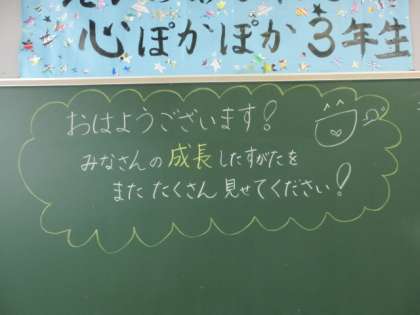 心ぽかぽか3年生
おはようございます!
みなさんの成長したすがたを
また たくさん 見せてください!